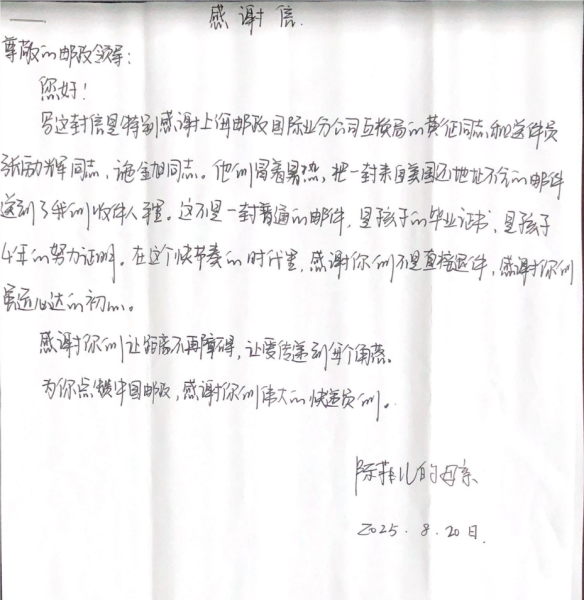 感谢信.
尊敬的邮政领导:
您好!
写这封信是特别感谢上海邮政国际业分公司互换局的黄征同志和送件员
张励辉同志、施金旭同志。他们冒着暑热,把一封来自美国还地址不全的邮件
送到了我们收件人手里。这不是一封普通的邮件,是孩子的毕业证书,是孩子
4年的努力证明。在这个快节奏的时代里,感谢你们不是直接退件,感谢你们
虽远必达的初心。
感谢你们让距离不再障碍,让爱传递到每个角落。
为你点赞中国邮政,感谢你们伟大的快递员们。
陈菲儿的母亲
2025.8.20日.